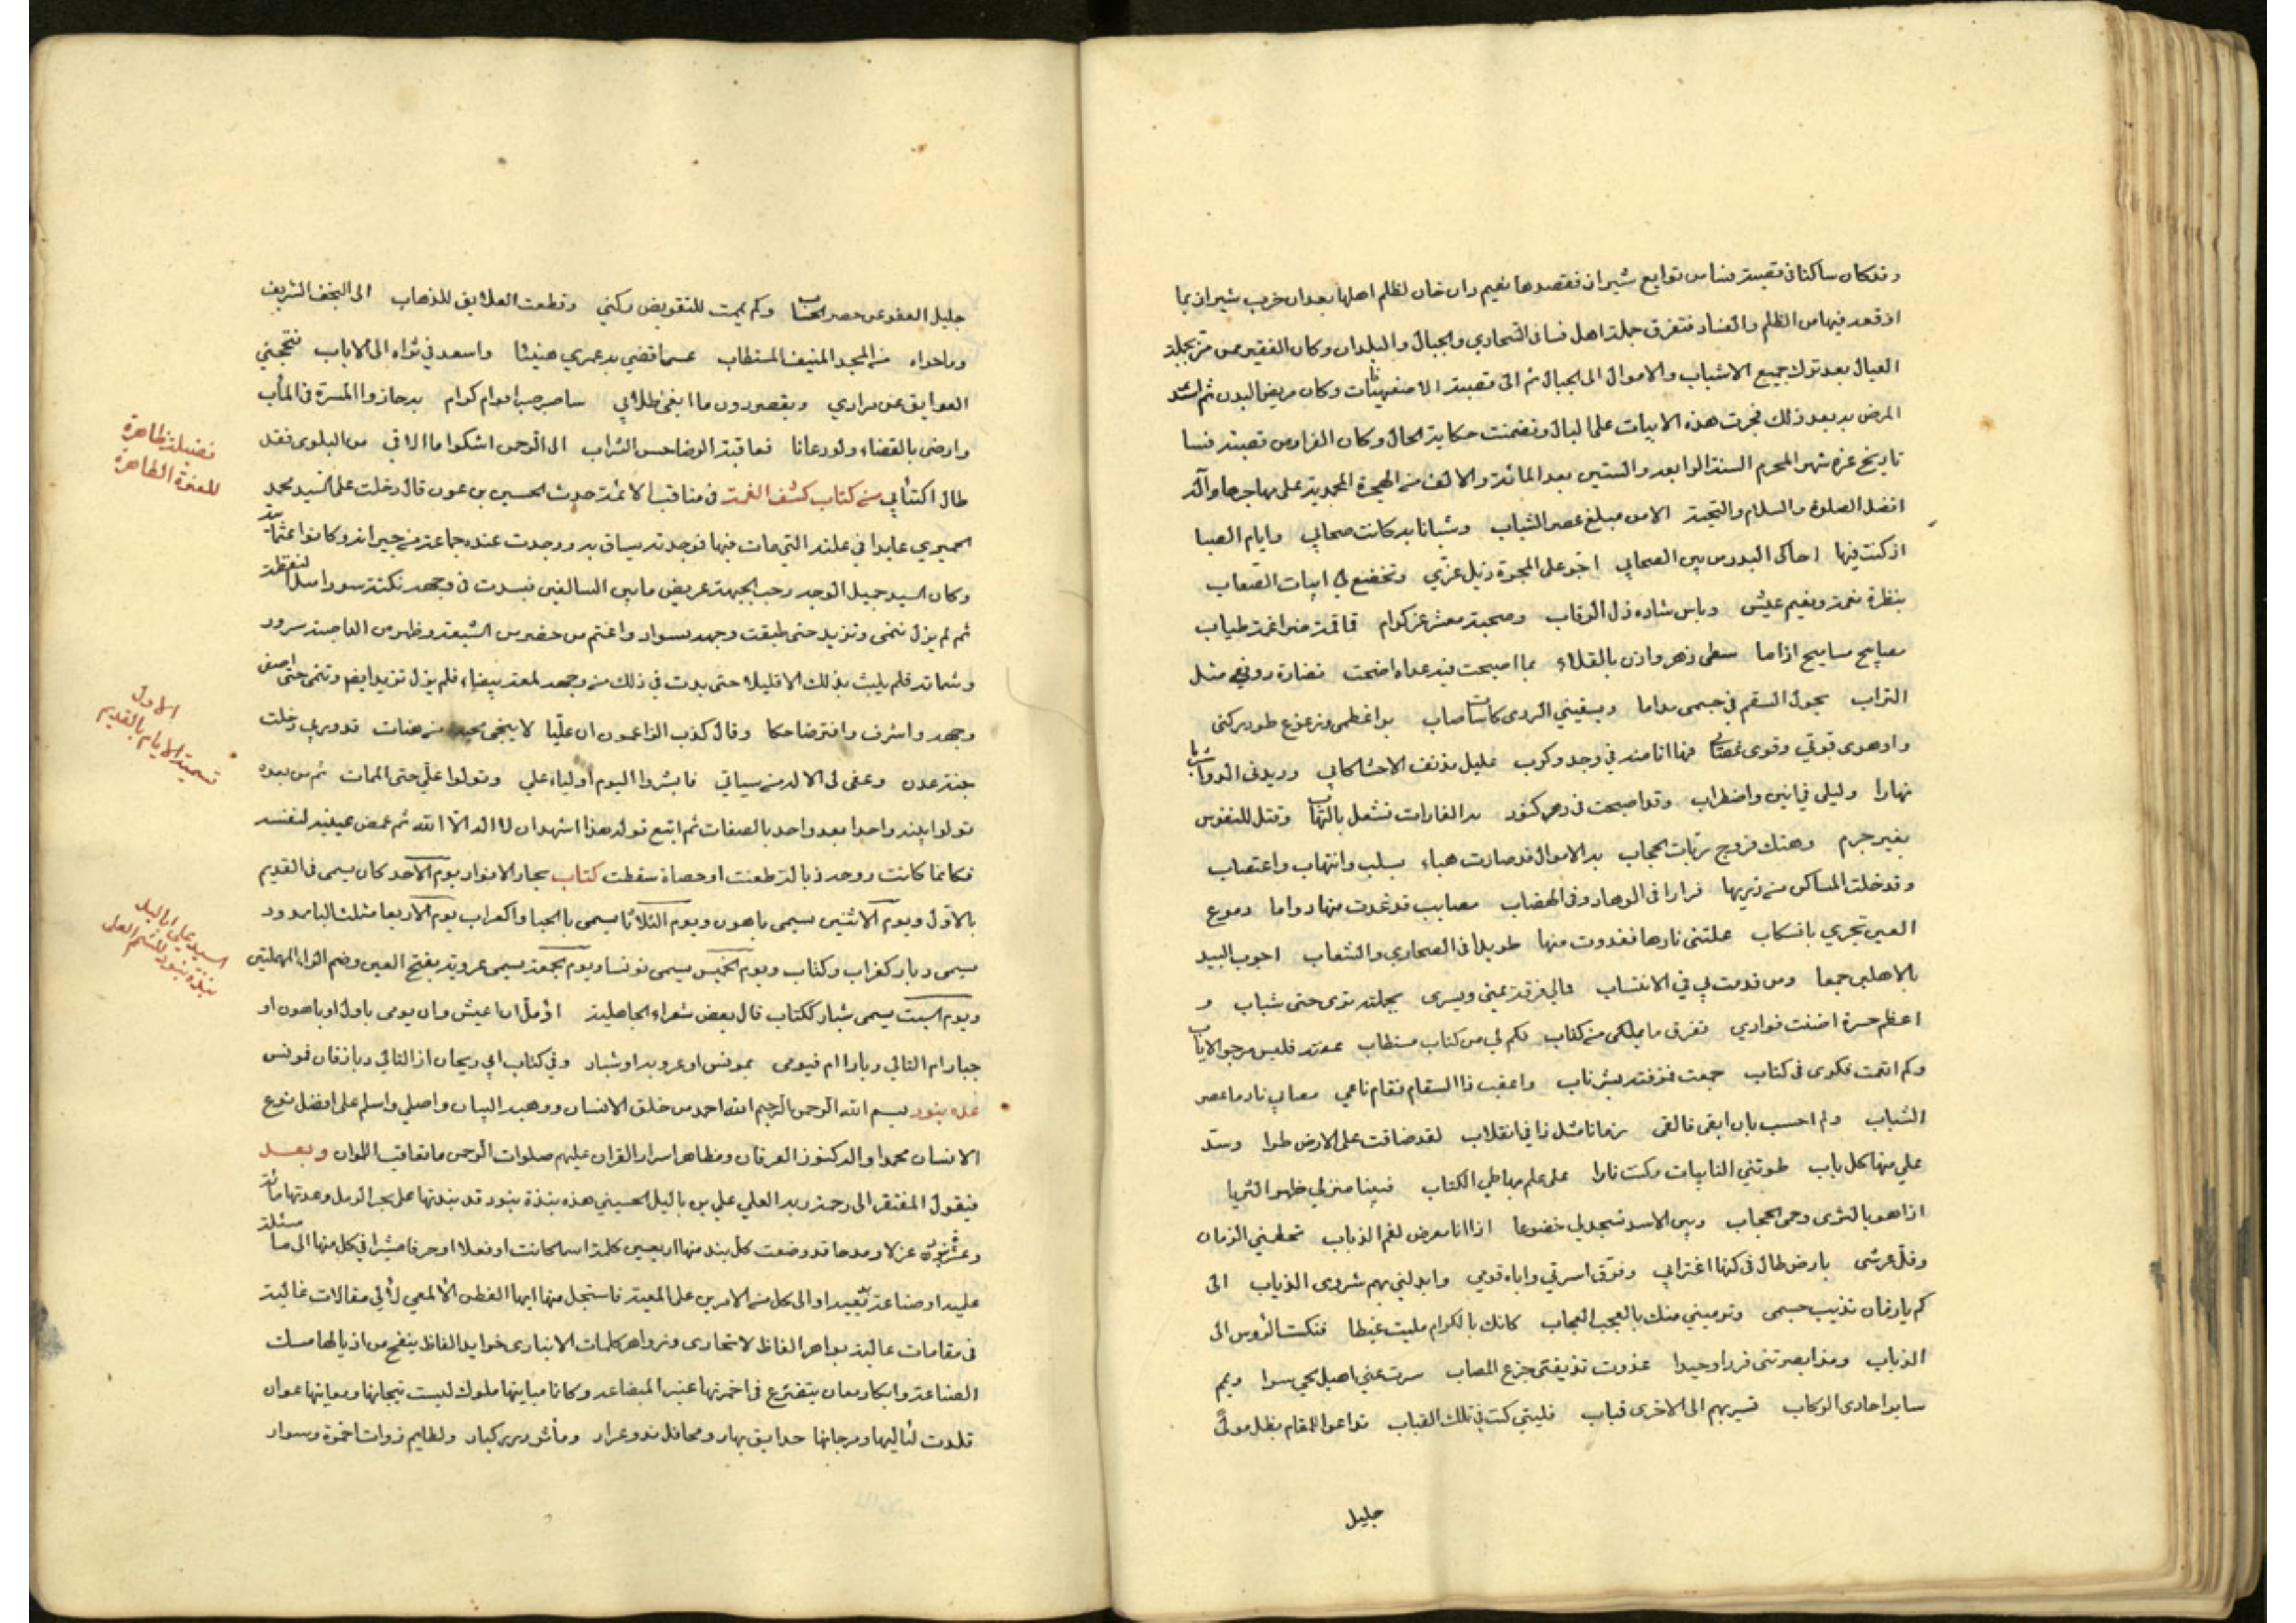 وقد كان ساكنا في قصبة فسا من توابع شيراز فقصدها نعيم دان خان لظلم اهلها بعد ان خرب شيراز بما
اوقعه فيها من الظلم والفساد فتفرق جملة اهل فسا في الصحاري والجبال والبلدان وكان الفقير ممن
العيال بعد ترك جميع الاسباب والاموال الى الجبال ثم الى قصبة الاصفهانات وكان مريض البدن ثم اشتد
المرض به بعد ذلك فجرت هذه الابيات على البال وتضمنت حكاية الحال وكان الفرار من قصبة فسا
تاريخ غرة شهر المحرم السنة الرابعة والستين بعد المائة والالف من الهجرة المحمدية على مهاجرها وآله
افضل الصلوة والسلام والتحية الا من مبلغ عصر الشباب وشبانا به كانت صحابي وايام الصبا
اذ كنت فيها احاكي البدر من بين الصحاب اجر على المجرة ذيل عزي وتخضع لي ابيات الصعاب
بنظرة نعمة ونعيم عيش وباس شاده ذل الرقاب وصحبة معشر غر كرام
مصابيح مساميح اذا ما سطى دهر واذن بالقلاء بما اصبحت فيه عداه اضحت نضارة رونقي مثل
التراب يجول السقم في جسمي مداما ويسقيني الردى كاسات صاب
واوهى قوتي وقوى فها انا منه في وجد وكرب عليل مدنف الاحشاء كابي
نهارا وليلي في انين واضطراب وقد اصبحت في دهر كنود به الغارات تشعل بالتهاب وقتل للنفوس
بغير جرم وهتك فروج ربات الحجاب به الاموال قد صارت هباء بسلب وانتهاب واغتصاب
وقد خلت المساكن من ذويها فرارا في الوهاد وفي الهضاب مصايب قد غدت منها دواما دموع
العين تجري بانسكاب علتني نارها فغدوت منها طويلا في الصحاري والشعاب اجوب البيد
بالاهلين جمعا ومن قد مت لي في الانتساب فالي فرقة يمنى ويسرى بجملته توى حتى شباب و
اعظم حسرة اضنت فوادي تفرق ما بملكي من كتاب فكم لي من كتاب مستطاب
وكم اتعبت فكري في كتاب جمعت فمزقته بشر ناب واعقب ذا السقام فقام ناعي مصاب نادما عصر
الشباب ولم احسب بان ابقى فالقى زمانا مثل ذا في انقلاب لقد ضاقت على الارض طرا وسد
علي منها كل باب طوتني النايبات وكنت نارا على علم بها طي الكتاب فبينا منزلي ظهر الثريا
اذا هو بالثرى وحمى الحجاب وبين الاسد تسجد لي خضوعا اذا انا معرض لغم الذباب
وفل عرشي بارض طال في كنها اغترابي وفرق اسرتي واباد قومي وابدلني بهم شروى الذياب الى
كم يا زمان تذيب جسمي وترميني منك بالعجب العجاب كانك بالكرام مليت غيظا فنكست الرؤس الى
الذباب ومذ ابصرتني فردا وحيدا غدوت تذيقني جزع المصاب سرت عني اهيل
سايرا حادى الركاب تسير بهم الى الاخرى قباب فليتني كنت في تلك القباب تداعوا للمقام بظل مولى
جليل
جليل العفو عن حصر الحساب وكم يممت للتقويض ركني وقطعت العلايق للذهاب الى النجف الشريف
وما حواه من المجد المنيف المستطاب عسى اقضي به عمري هنيئا واسعد في ثراه الى الاياب فتحجني
العوايق عن مرادي ويقصر دون ما ابغي طلابي ساصبر صبر اقوام كرام به حازوا المسرة في المآب
وارضى بالقضاء ولو دعانا فعاقبة الرضا حسن الثواب الى الرحمن اشكو ما الاقي من البلوى فقد
طال اكتئابي من كتاب كشف الغمة في مناقب الائمة حدث الحسين بن عون قال دخلت على السيد محمد
الحميري عايدا في علته التي مات فيها فوجدته يساق به ووجدت عنده جماعة من جيرانه وكانوا عثمانية
وكان السيد جميل الوجه رحب الجبهة عريض ما بين السالفين فبدت في وجهه نكتة سودا مثل النقطة
ثم لم يزل تنمى وتزيد حتى طبقت وجهه بسواد واغتم من حضر من الشيعة وظهر من الناصبة سرور
وشماتة فلم يلبث بذلك الا قليلا حتى بدت في ذلك من وجهه لمعة بيضاء فلم يزل تزيد ايضا وتنمى حتى اصفى
وجهه واشرق وافتر ضاحكا وقال كذب الزاعمون ان عليا لا ينجى محبه من هنات قد وربي دخلت
جنة عدن وعفى لى الاله من سياتي فابشروا اليوم اولياء علي وتولوا علي حتى الممات ثم من بعده
تولوا بنيه واحدا بعد واحد بالصفات ثم اتبع قوله هذا اشهد ان لا اله الا الله ثم غمض عينيه لنفسه
فكانما كانت روحه ذبالة طفئت او حصاة سقطت كتاب بحار الانوار يوم الاحد كان يسمى في القديم
بالاول ويوم الاثنين يسمى باهون ويوم الثلاثا يسمى بالجبار كغراب ويوم الاربعا مثلث الباء ممدود
يسمى دبار كغراب وكتاب ويوم الخميس يسمى مونسا ويوم الجمعة يسمى عروبة بفتح العين وضم الراء المهملتين
ويوم السبت يسمى شبار ككتاب قال بعض شعراء الجاهلية اؤمل ان اعيش وان يومي باول او باهون او
جبار ام التالي دبارا ام فيومي بمونس او عروبة او شبار وفي كتاب ابي ريحان اذ التالي دبار فان فونس
عدة بنود بسم الله الرحمن الرحيم الله احمد من خلق الانسان ووهبه البيان واصلي واسلم على افضل نوع
الانسان محمد واله كنوز العرفان ومظاهر اسرار القران عليهم صلوات الرحمن ما تعاقب الملوان وبعد
فيقول المفتقر الى رحمة ربه العلي علي بن باليل الحسيني هذه نبذة بنود قد نبذتها على بحر الرمل وعدتها مائة
وعشرون غزلا ومدحا قد وضعت كل بند منها اربعين كلمة اسما كانت او فعلا او حرفا مشيرا في كل منها الى مسئلة
علمية او صناعة بديعية او الى كل من الامرين على المعية فاستجل منها ايها الفطن الالمعي لآلي مقالات غالية
في مقامات عالية بواهر الفاظ لا تحارى وزواهر كلمات لا تبارى خرايد الفاظ ينفح من اذيالها مسك
الصناعة وابكار معان يتضوع في اخمرتها عنبر البضاعة وكانما مبانيها ملوك لبست تيجانها ومعانيها غوان
قلدت لئاليها ومرجانها حدايق بهار ومحافل ند وعرار
فضيلة ظاهرة
للعترة الطاهرة
الاول
تسمية الايام بالقديم
السيد علي باليل
نبذة بنود